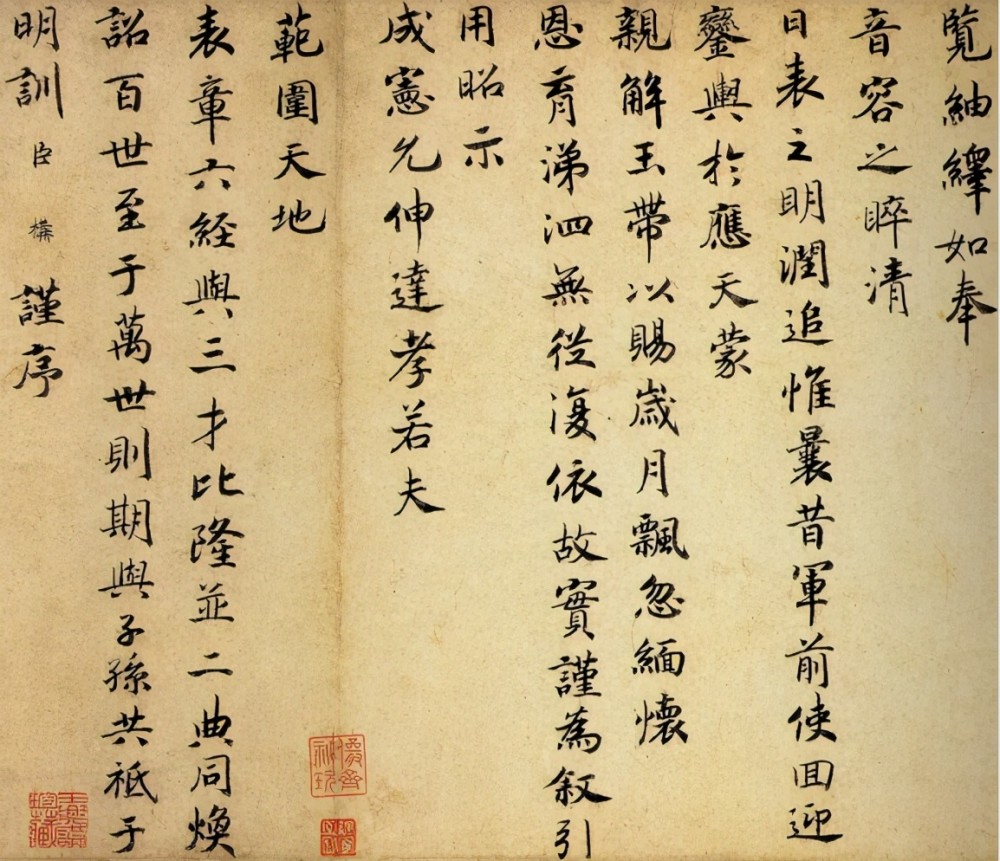 覽紬繹如奉
音容之睟清
日表之明潤追惟曩昔軍前使回迎
鑾輿於應天蒙
親解玉帶以賜歲月飄忽緬懷
恩育涕泗無從復依故實謹為叙引
用昭示
成憲允伸達孝若夫
範圍天地
表章六經與三才比隆並二典同煥
詒百世至于萬世則期與子孫共祗于
明訓臣構謹序